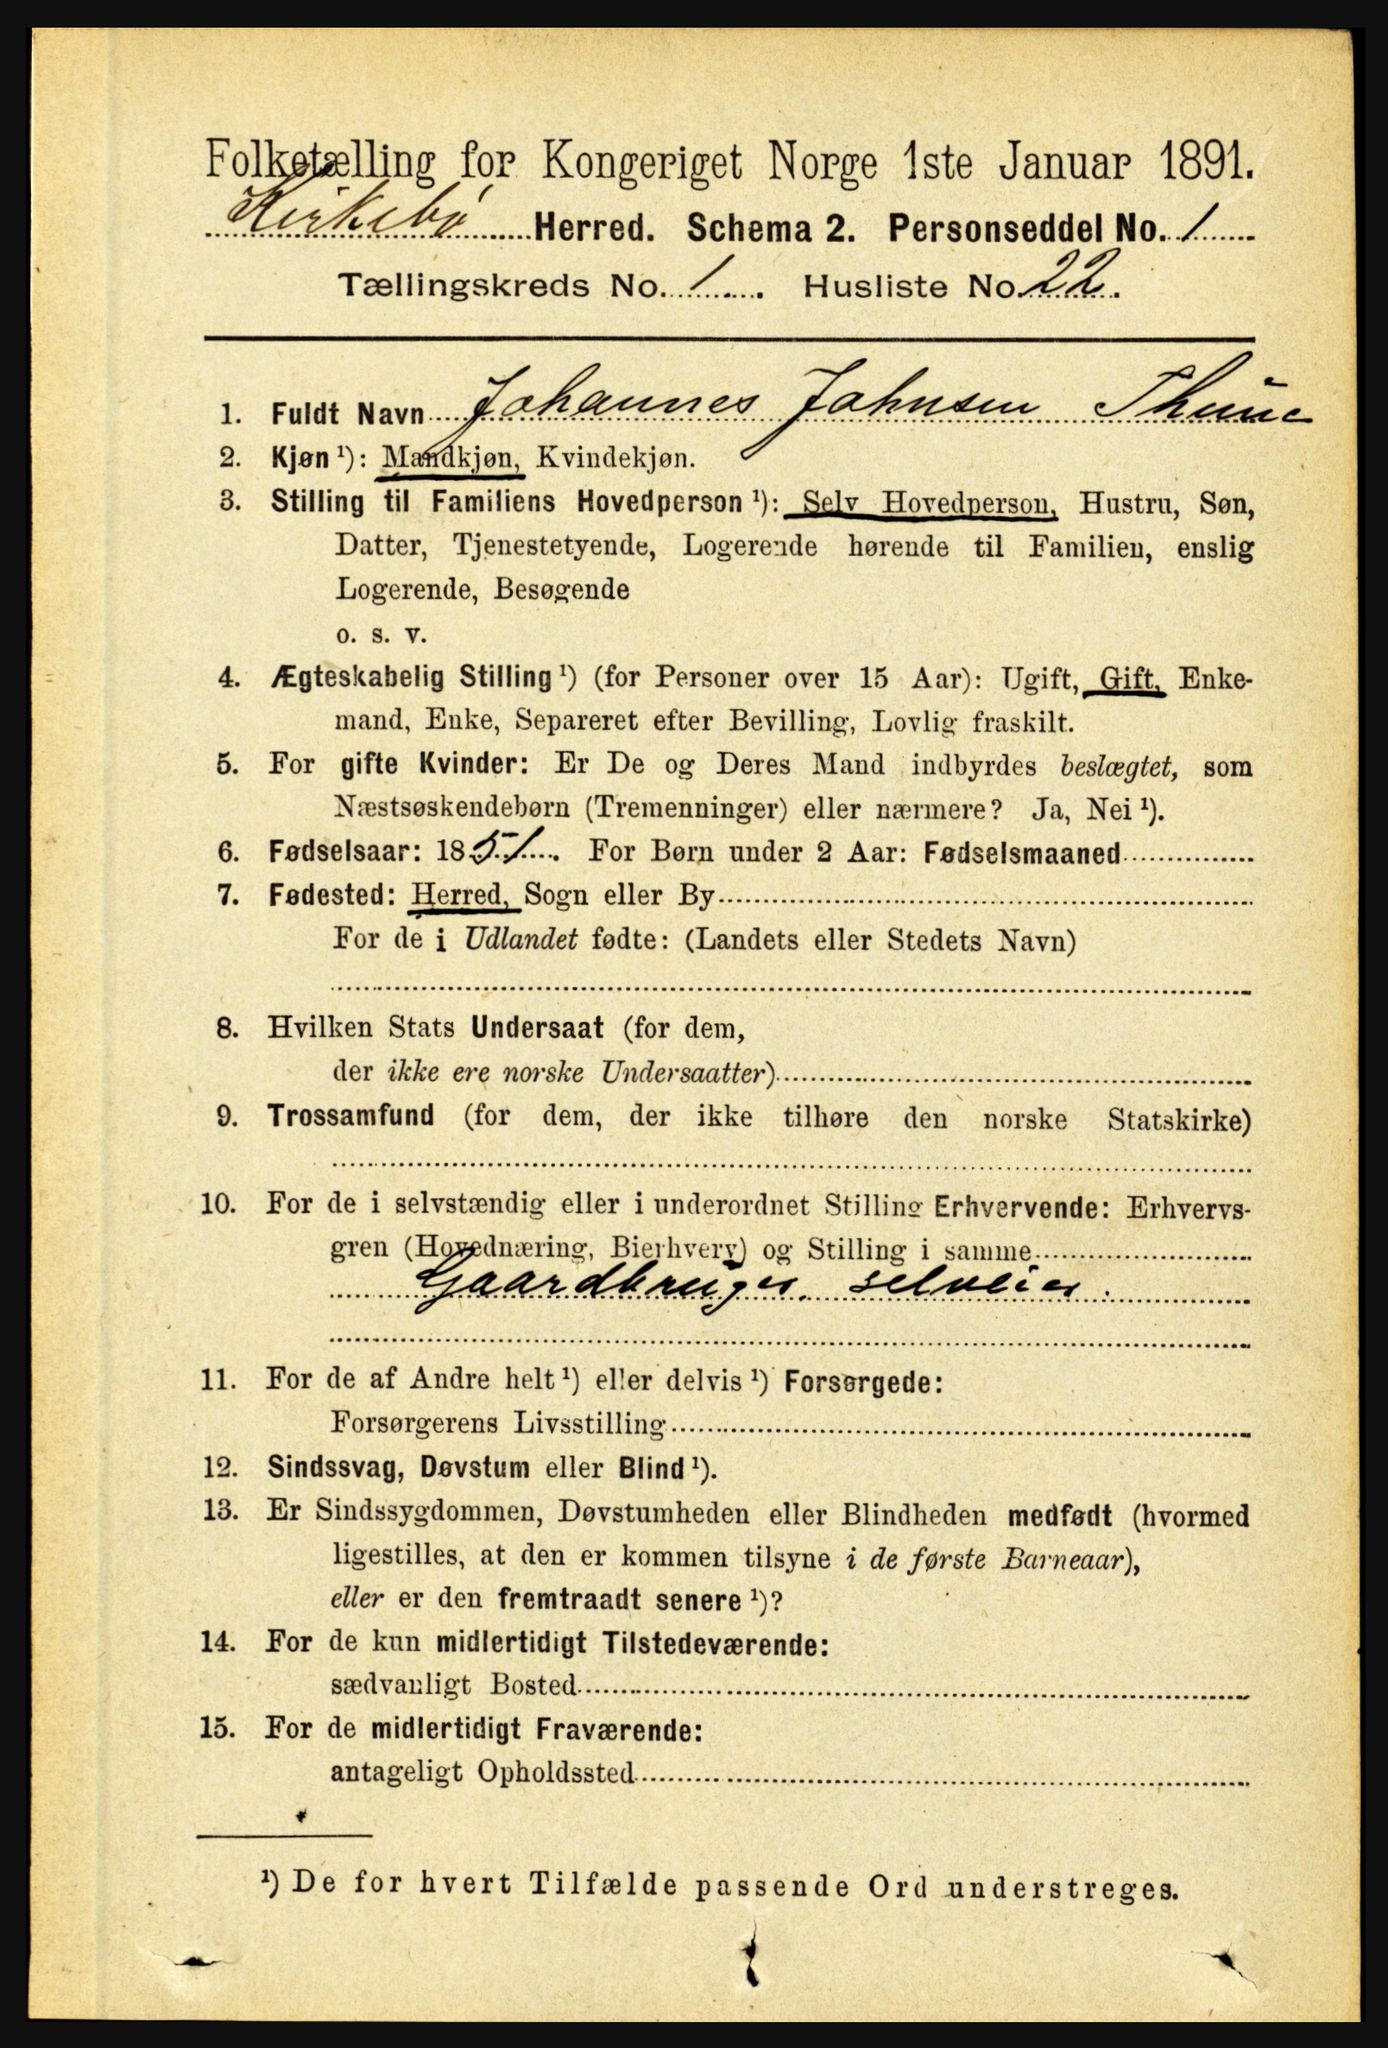 Folketælling for Kongeriget Norge 1ste Januar 1891.
Kirkebø Herred. Schema 2. Personseddel No. 1
Tællingskreds No. 1. Husliste No. 22.
1. Fuldt Navn Johannes Johnsen Thune
2. Kjøn ¹): Mandkjøn, Kvindekjøn.
3. Stilling til Familiens Hovedperson ¹): Selv Hovedperson, Hustru, Søn,
Datter, Tjenestetyende, Logerende hørende til Familien, enslig
Logerende, Besøgende
o. s. v.
4. Ægteskabelig Stilling ¹) (for Personer over 15 Aar): Ugift, Gift, Enke-
mand, Enke, Separeret efter Bevilling, Lovlig fraskilt.
5. For gifte Kvinder: Er De og Deres Mand indbyrdes beslægtet, som
Næstsøskendebørn (Tremenninger) eller nærmere? Ja, Nei ¹).
6. Fødselsaar: 1851. For Børn under 2 Aar: Fødselsmaaned
7. Fødested: Herred, Sogn eller By
For de i Udlandet fødte: (Landets eller Stedets Navn)
8. Hvilken Stats Undersaat (for dem,
der ikke ere norske Undersaatter)
9. Trossamfund (for dem, der ikke tilhøre den norske Statskirke)
10. For de i selvstændig eller i underordnet Stilling Erhvervende: Erhvervs-
gren (Hovednæring, Bierhverv) og Stilling i samme
Gaardbruger. selveier.
11. For de af Andre helt ¹) eller delvis ¹) Forsørgede:
Forsørgerens Livsstilling
12. Sindssvag, Døvstum eller Blind ¹).
13. Er Sindssygdommen, Døvstumheden eller Blindheden medfødt (hvormed
ligestilles, at den er kommen tilsyne i de første Barneaar),
eller er den fremtraadt senere ¹)?
14. For de kun midlertidigt Tilstedeværende:
sædvanligt Bosted
15. For de midlertidigt Fraværende:
antageligt Opholdssted
¹) De for hvert Tilfælde passende Ord understreges.